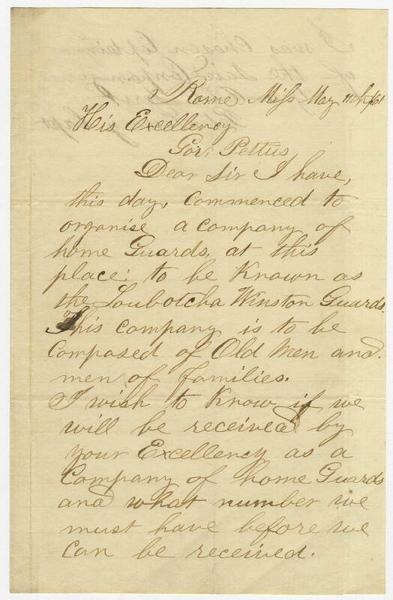 Rome Miss May 11th /61
His Excellency
Gov. Pettus
Dear Sir I have,
this day, commenced to
organise a company of
home Guards, at this
place; to be Known as
the Loubotcha Winston Guards.
This company is to be
Composed of Old Men and
men of families.
I wish to Know if we
will be received by
your Excellency as a
Company of home Guards
and what number we
must have before we
can be received.